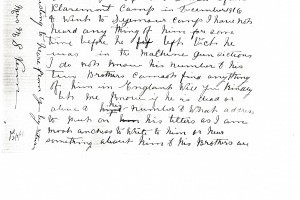 Claremont Camp in December 1916
& Went to Seymour Camp I have not
heard any thing of him for some
time before he left Vict he
was in the Machine gun section
I do not know his number & his
two Brothers cannot find anything
of him in England Will you kindly
let me know if he is dead or
alive & number & What
to put on his letters as I am
most anxious to Write to him or hear
something about him & his Brothers are
to Hear from you by return
Mrs M S